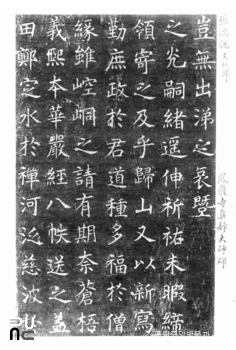 豈無出涕之哀曁
之光嗣緒遥伸祈祐未暇締
領寄之及乎歸山又以新寫
勤庶政於君道種多福於僧
緣雖崆峒之請有期奈蒼梧
義熙本華嚴經八帙送之蓋
田鄭定水於禪河汎慈波
鳳巖寺真靜大師碑